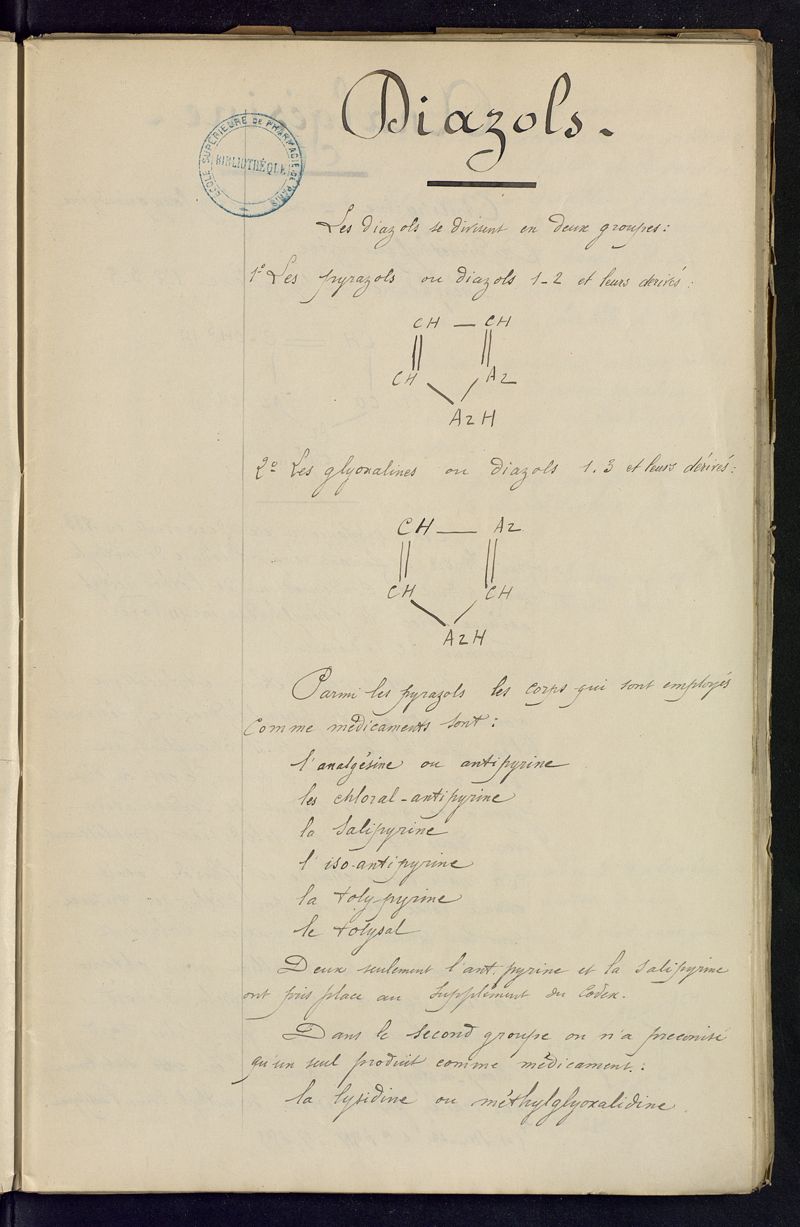 Diazols.
ÉCOLE SUPÉRIEURE DE PHARMACIE DE PARIS
BIBLIOTHÈQUE
Les diazols se divisent en deux groupes:
1° Les pyrazols ou diazols 1-2 et leurs dérivés:
CH — CH
CH Az
AzH
2° Les glyoxalines ou diazols 1.3 et leurs dérivés:
CH — Az
CH CH
AzH
Parmi les pyrazols les corps qui sont employés
comme médicaments sont:
l'analgésine ou antipyrine
les chloral-antipyrine
la Salipyrine
l'iso-antipyrine
la tolypyrine
le tolysal
Deux seulement l'antipyrine et la Salipyrine
ont pris place au Supplément du Codex.
Dans le second groupe on n'a préconisé
qu'un seul produit comme médicament:
la lysidine ou méthylglyoxalidine.